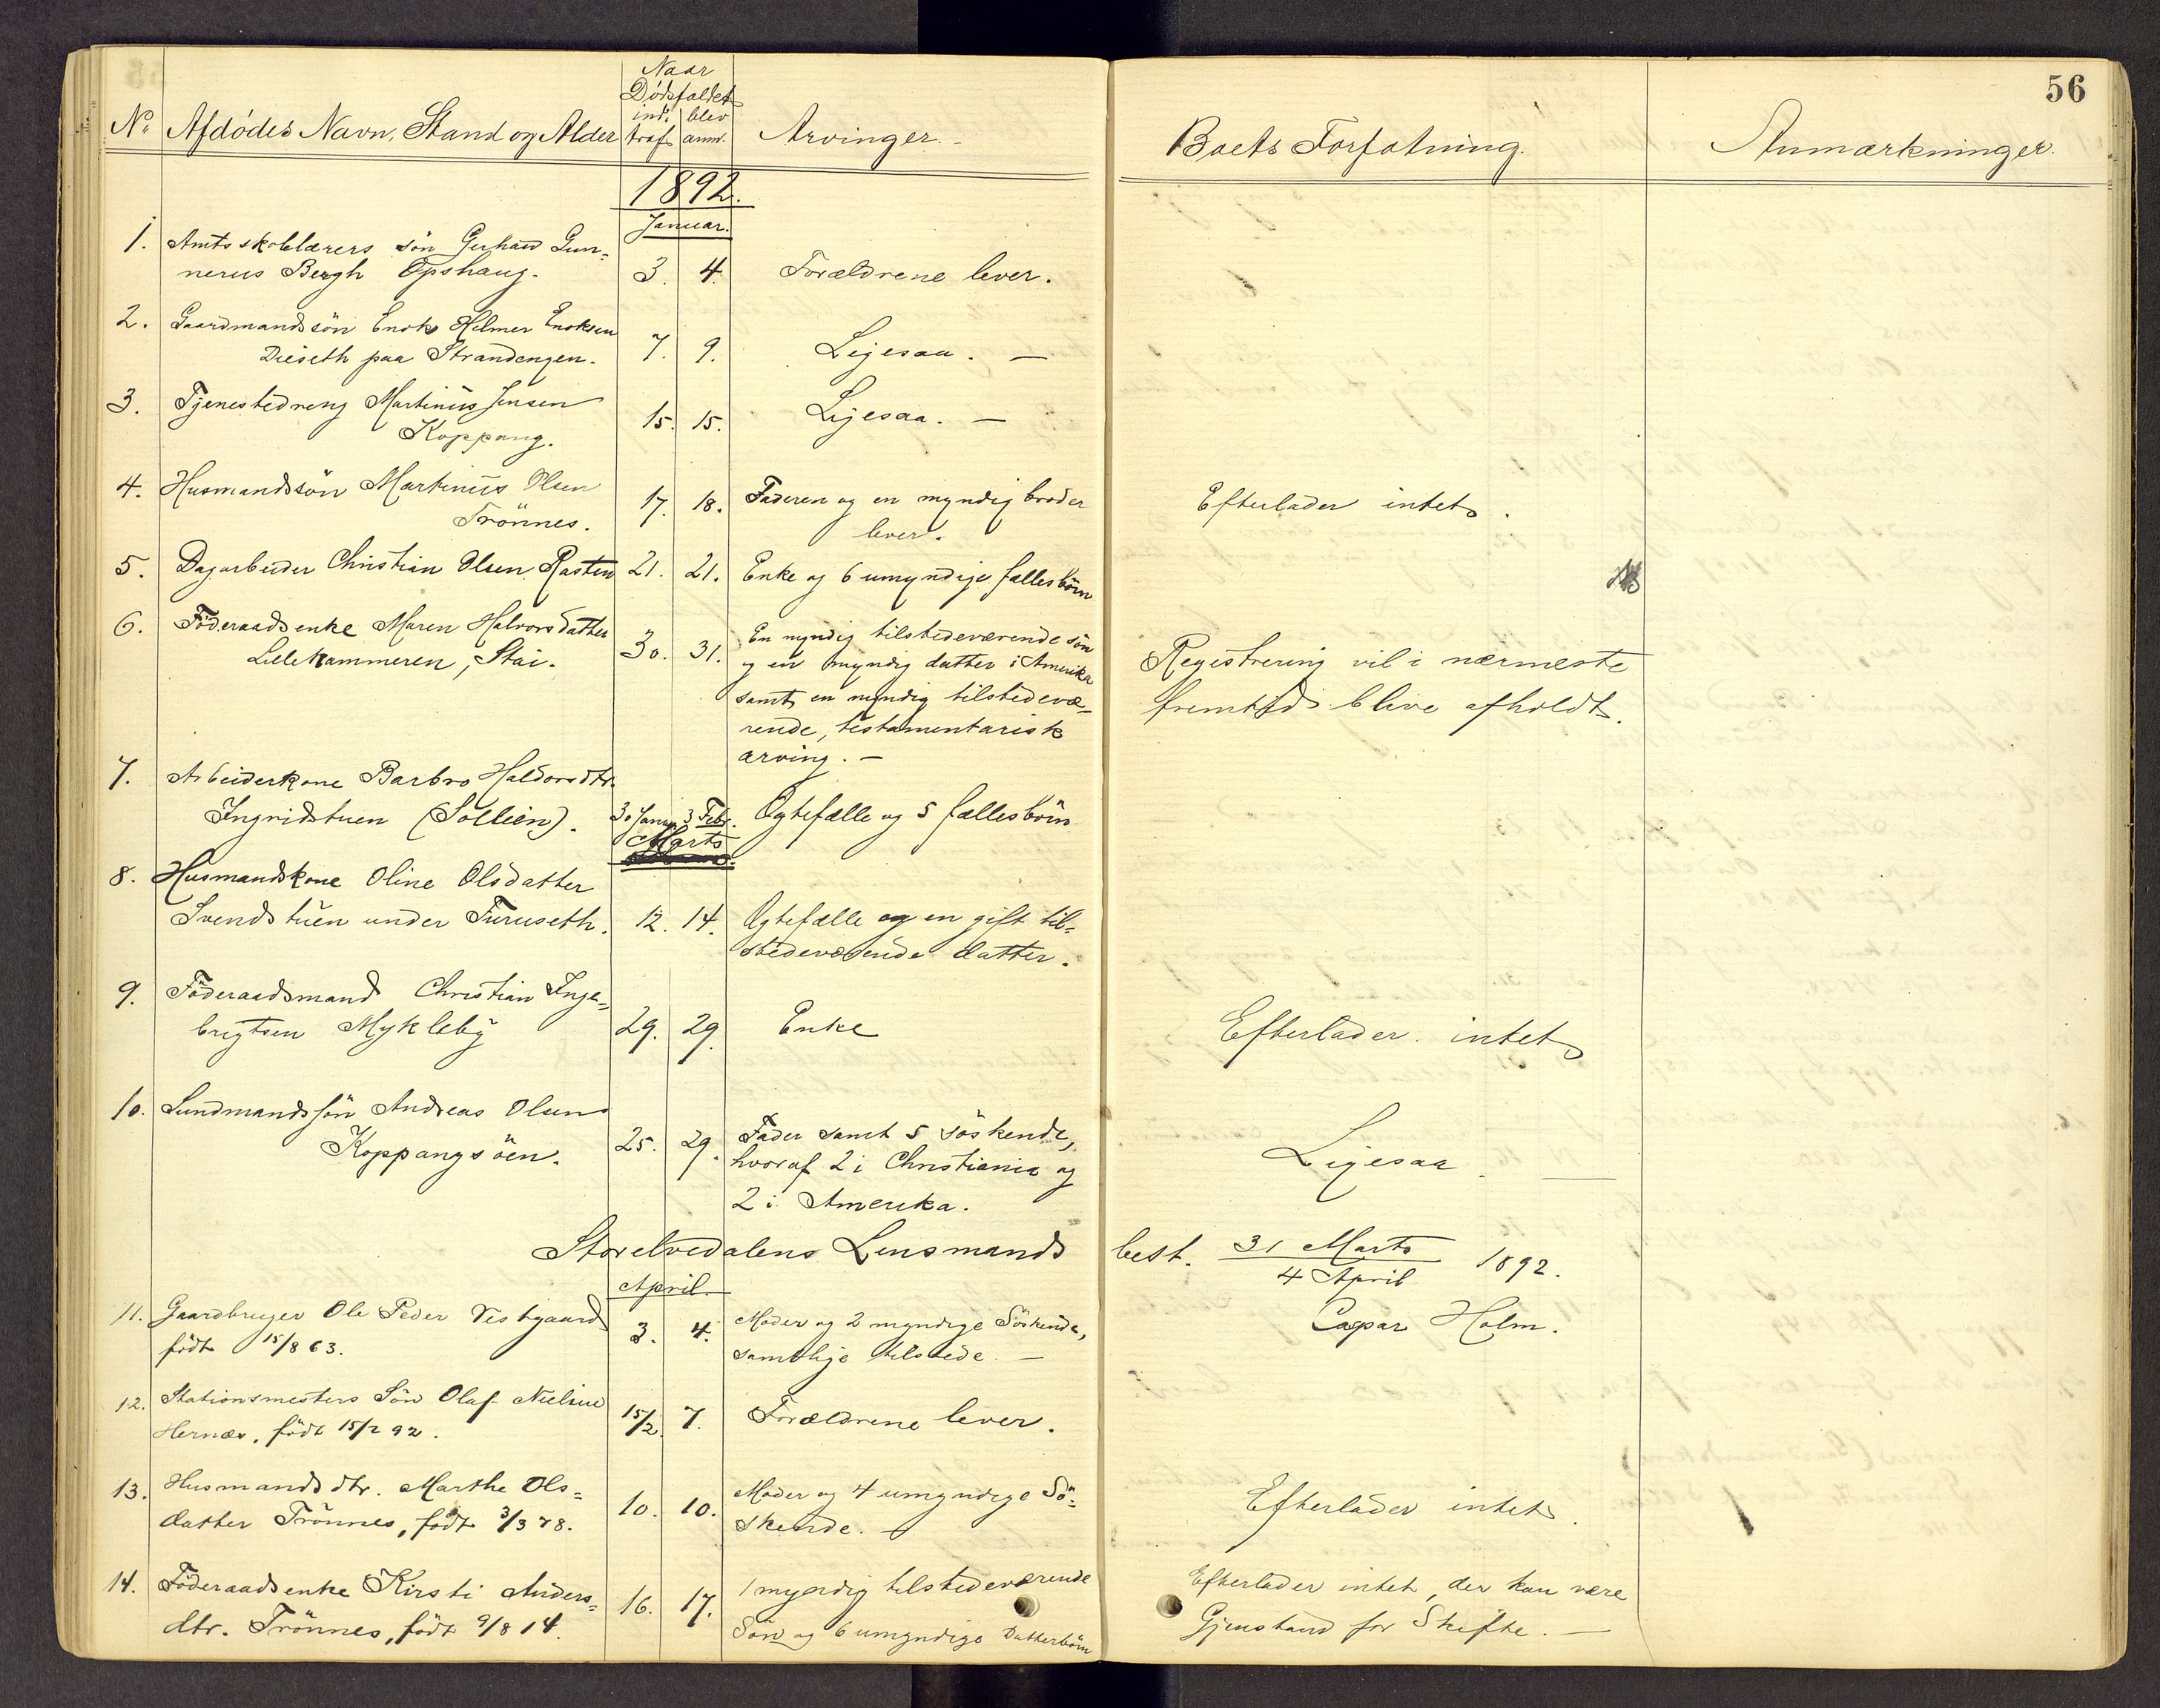 56
Naar
Dødsfaldet
ind- blev
traf anm.
No Afdødes Navn, Stand og Alder Arvinger.
Boets Forfatning. Anmærkninger.
1892.
Januar.
1. Amtsskolelærers søn Gerhard Gun-
nerus Bergh Opshaug. 3. 4. Forældrene lever.
2. Gaardmandssøn Enok Helmer Enoksen
Dieseth paa Strandengen. 7. 9. Ligesaa. —
3. Tjenestedreng Martinus Jensen
Koppang. 15. 15. Ligesaa. —
4. Husmandssøn Martinus Olsen
Trønnes. 17. 18. Faderen og en myndig broder
lever. Efterlader intet.
5. Dagarbeider Christian Olsen Rasten 21. 21. Enke og 6 umyndige fællesbørn
6. Føderaadsenke Maren Halvorsdatter
Lillekammeren, Stai. 30. 31. En myndig tilstedeværende søn
og en myndig datter i Amerika
samt en myndig tilstedevæ-
rende, testamentarisk
arving. —
Registrering vil i nærmeste
fremtid blive afholdt.
7. Arbeiderkone Barbro Haldorsdtr.
Ingridstuen (Sollien). 30 Januar 3 Febr. Ægtefælle og 5 fællesbørn
Marts
8. Husmandskone Oline Olsdatter
Svendstuen under Furuseth. 12. 14. Ægtefælle og en gift til-
stedeværende datter.
9. Føderaadsmand Christian Inge-
brigtsen Mykleby 29. 29. Enke Efterlader intet
10. Lundmandssøn Andreas Olsen
Koppangsøen. 25. 29. Fader samt 5 søskende,
hvoraf 2 i Christiania og
2 i Amerika.
Ligesaa. —
Storelvedalens Lensmandsbest. 31 Marts
4 April 1892.
Caspar Holm.
April.
11. Gaardbruger Ole Peder Vestgaard
født 15/8 63. 3. 4. Moder og 2 myndige Søskende,
samtlige tilstede. —
12. Stationsmesters Søn Olaf Nielsine
Hernæs, født 15/2 92. 15/2 7. Forældrene lever.
13. Husmandsdtr. Marthe Ols-
datter Trønnes, født 3/3 78. 10. 10. Moder og 4 umyndige Sø-
skende. — Efterlader intet.
14. Føderaadsenke Kirsti Anders-
dtr. Trønnes, født 9/8 14. 16. 17. 1 myndig tilstedeværende
Søn og 6 umyndige Datterbørn
Efterlader intet, der kan være
Gjenstand for Skifte. —